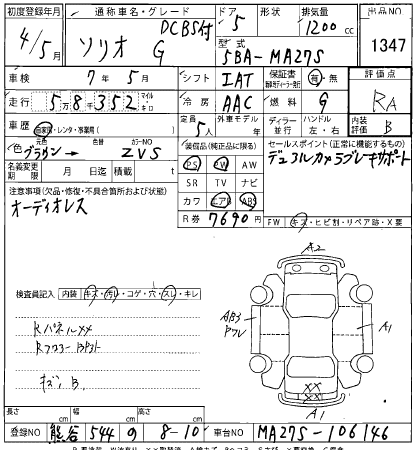 初度登録年月 通称車名・グレード DCBS付 ドア 形状 排気量 出品NO
4/5月 ソリオ G 5 1200cc 1347
型式 5BA-MA27S
車検 7年5月 シフト IAT 保証書 有・無 評価点
走行 58352 マイル キロ 冷房 AAC 燃料 G RA
車歴 自家用・レンタ・事業用( ) 定員 5人 外車モデル 年 ディーラー 並行 ハンドル 左・右 内装評価 B
色 元色 ブラウン→ 色替 カラーNO ZVS 装備品(純正品に限る) セールスポイント(正常に機能するもの)
名義変更期限 月 日迄 積載 t PS PW AW デュアルカメラブレーキサポート
注意事項(欠品・修復・不具合箇所および状態) SR TV ナビ
オーディオレス カワ エアB ABS
R券 7690円 FW キズ・ヒビ割・リペア跡・X要
検査員記入 内装 キズ・汚レ・コゲ・穴・スレ・キレ
A2
AB3
A1
RパネルXX
Rフロアー
キズ、B.
XX
XX
A1
長さ cm 幅 cm 高さ cm
登録NO 熊谷 544 の 8-10 車台NO MA27S-106146